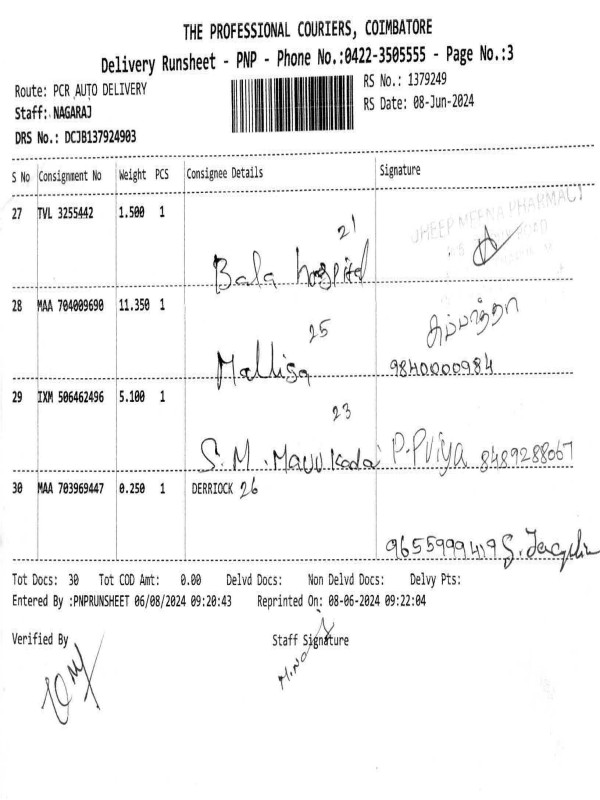 THE PROFESSIONAL COURIERS, COIMBATORE
Delivery Runsheet - PNP - Phone No.:0422-3505555 - Page No.:3
Route: PCR AUTO DELIVERY
RS No.: 1379249
Staff: NAGARAJ
RS Date: 08-Jun-2024
DRS No.: DCJB137924903
S No Consignment No Weight PCS Consignee Details Signature
27 TVL 3255442 1.500 1
MEENA PHARMACY
21
Bala hospital
28 MAA 704009690 11.350 1
25
Mallisa 9840000984
29 IXM 506462496 5.100 1
23
S.M. Mavu Kadai P.Priya 8489288067
30 MAA 703969447 0.250 1 DERRIOCK 26
9655999419 S.
Tot Docs: 30 Tot COD Amt: 0.00 Delvd Docs: Non Delvd Docs: Delvy Pts:
Entered By :PNPRUNSHEET 06/08/2024 09:20:43 Reprinted On: 08-06-2024 09:22:04
Verified By Staff Signature